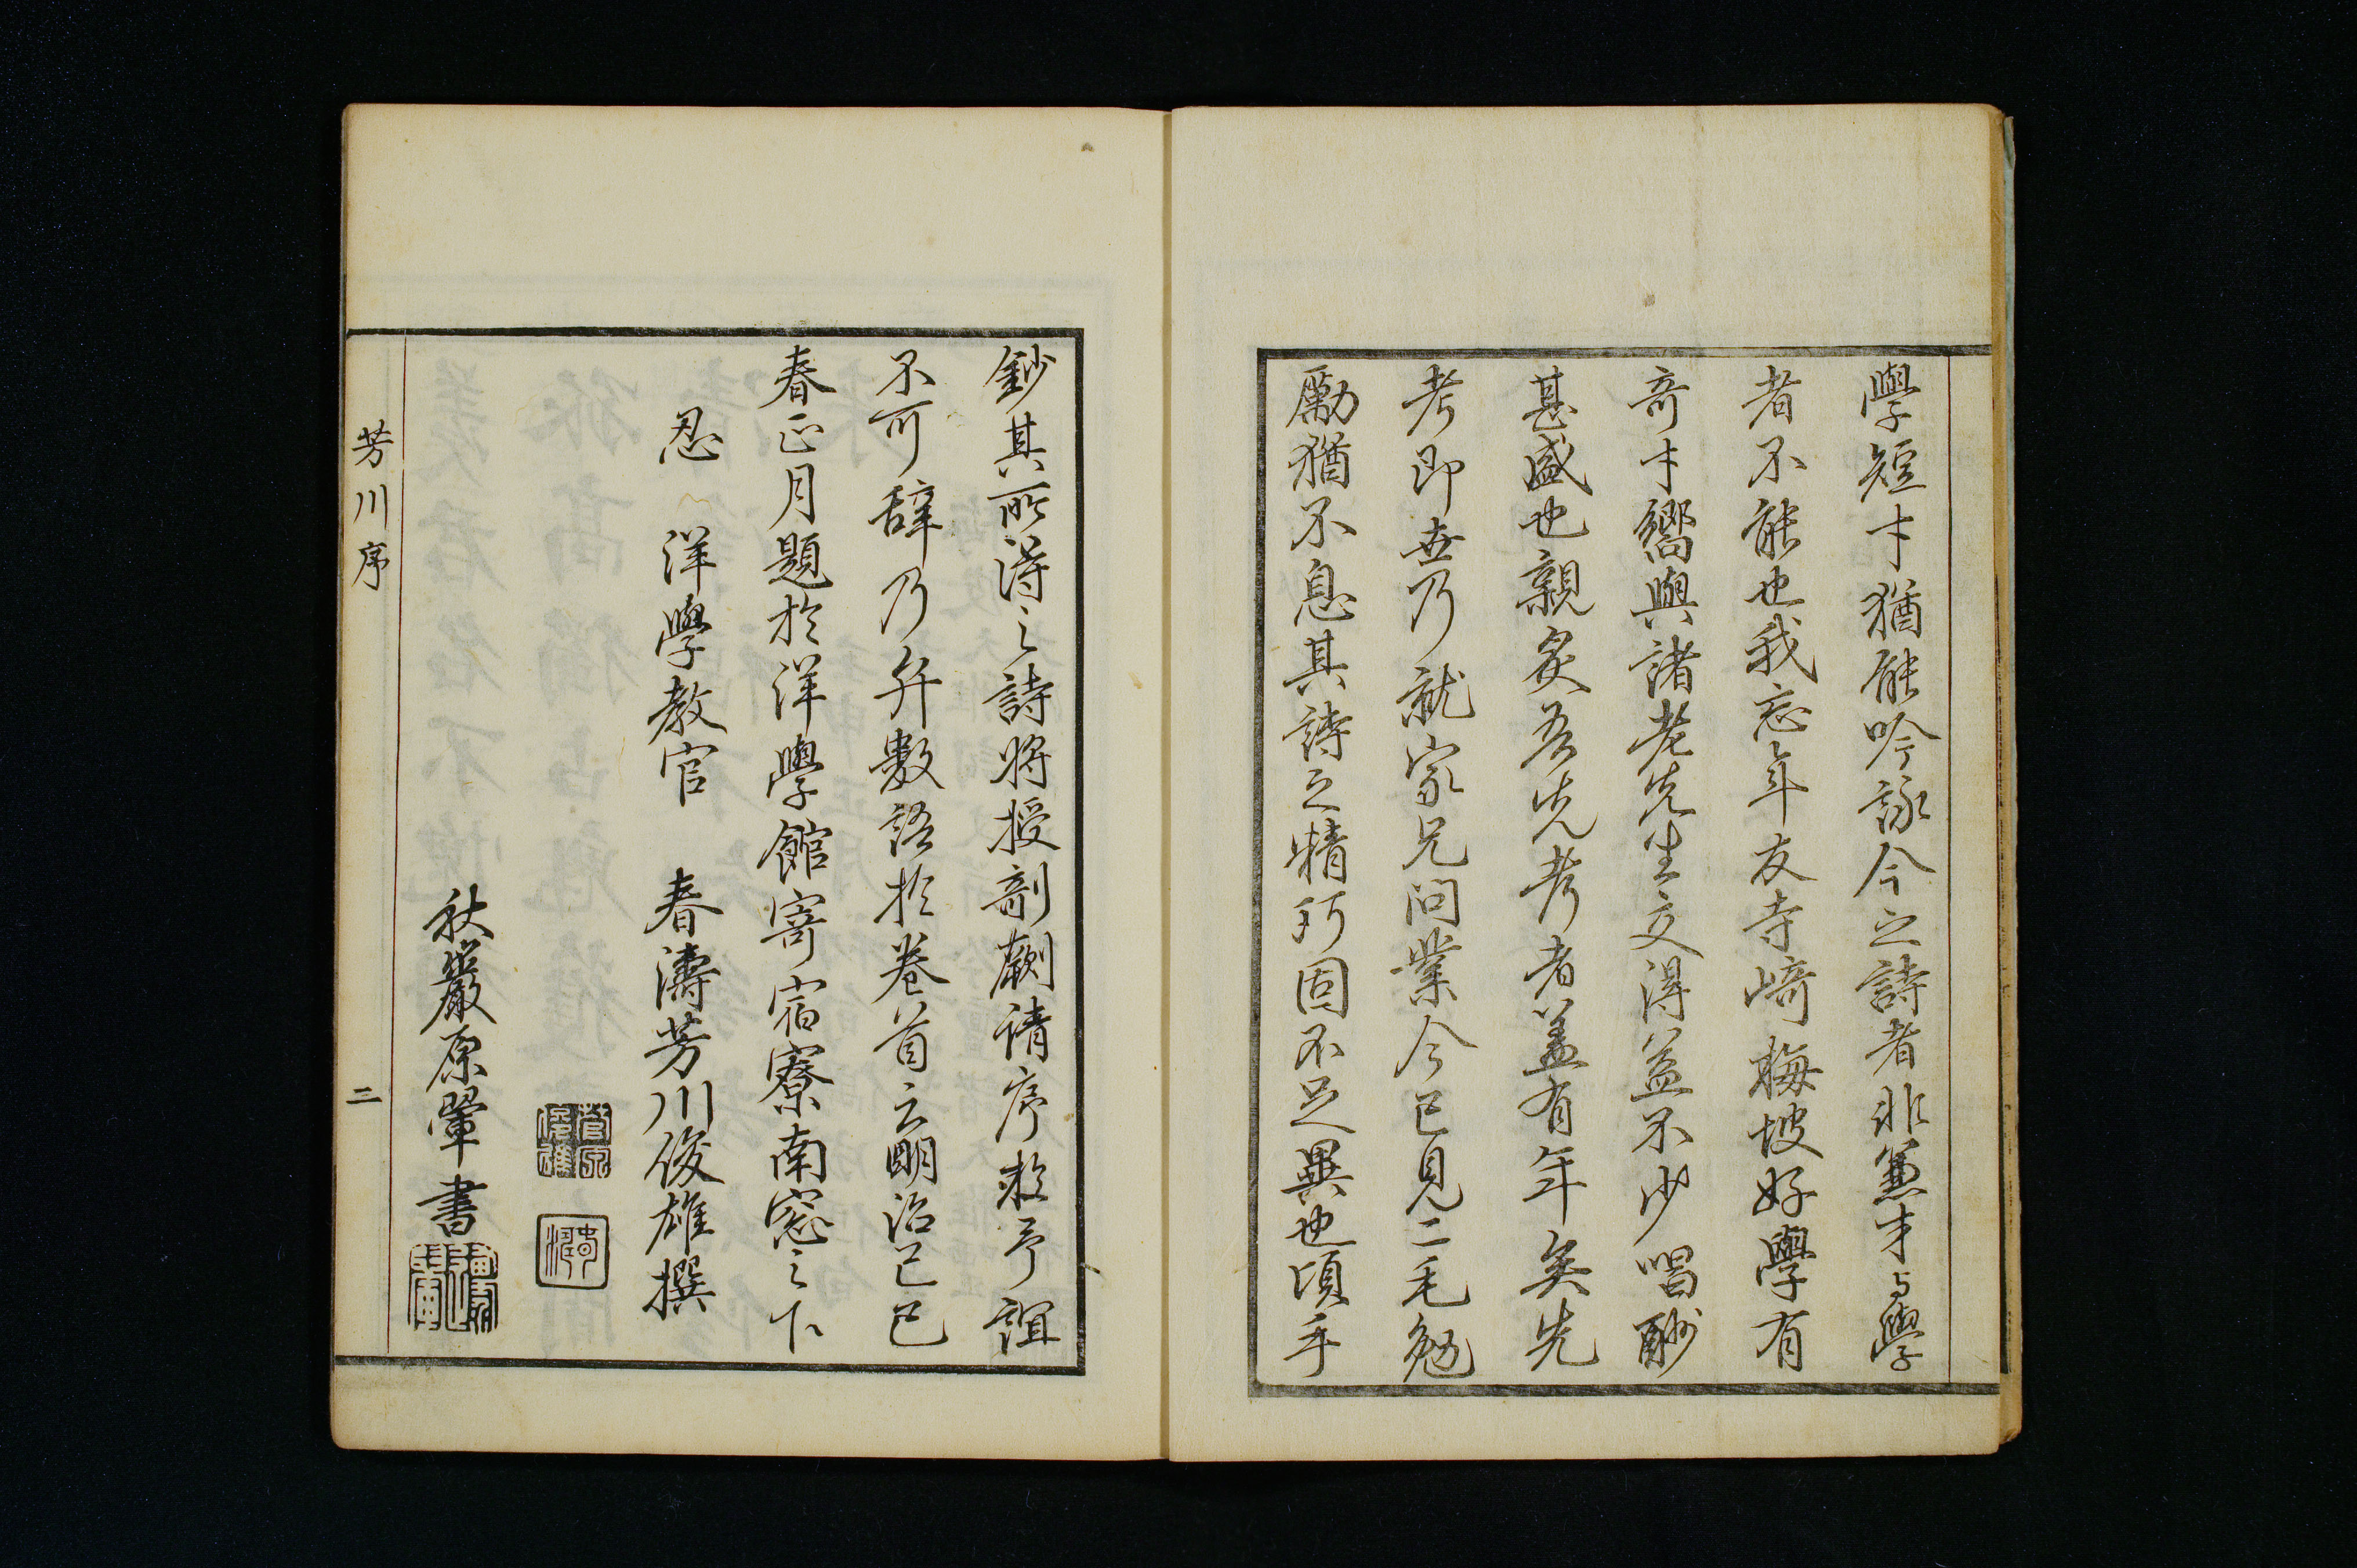 學短才猶能吟詠今之詩者非兼才與學
者不能也我忘年友寺﨑梅坡好學有
奇才嚮與諸老先生交得益不少唱酬
甚盛也親炙吾先考者蓋有年矣先
考即世乃就家兄問業今已見二毛勉
勵猶不息其詩之精巧固不足異也頃手
鈔其所得之詩將授剞劂請序於予誼
不可辞乃弁數語於卷首云明治己巳
春正月題於洋學館寄宿寮南窓之下
忍 洋學教官 春濤芳川俊雄撰
秋巖原翬書
芳川序
三